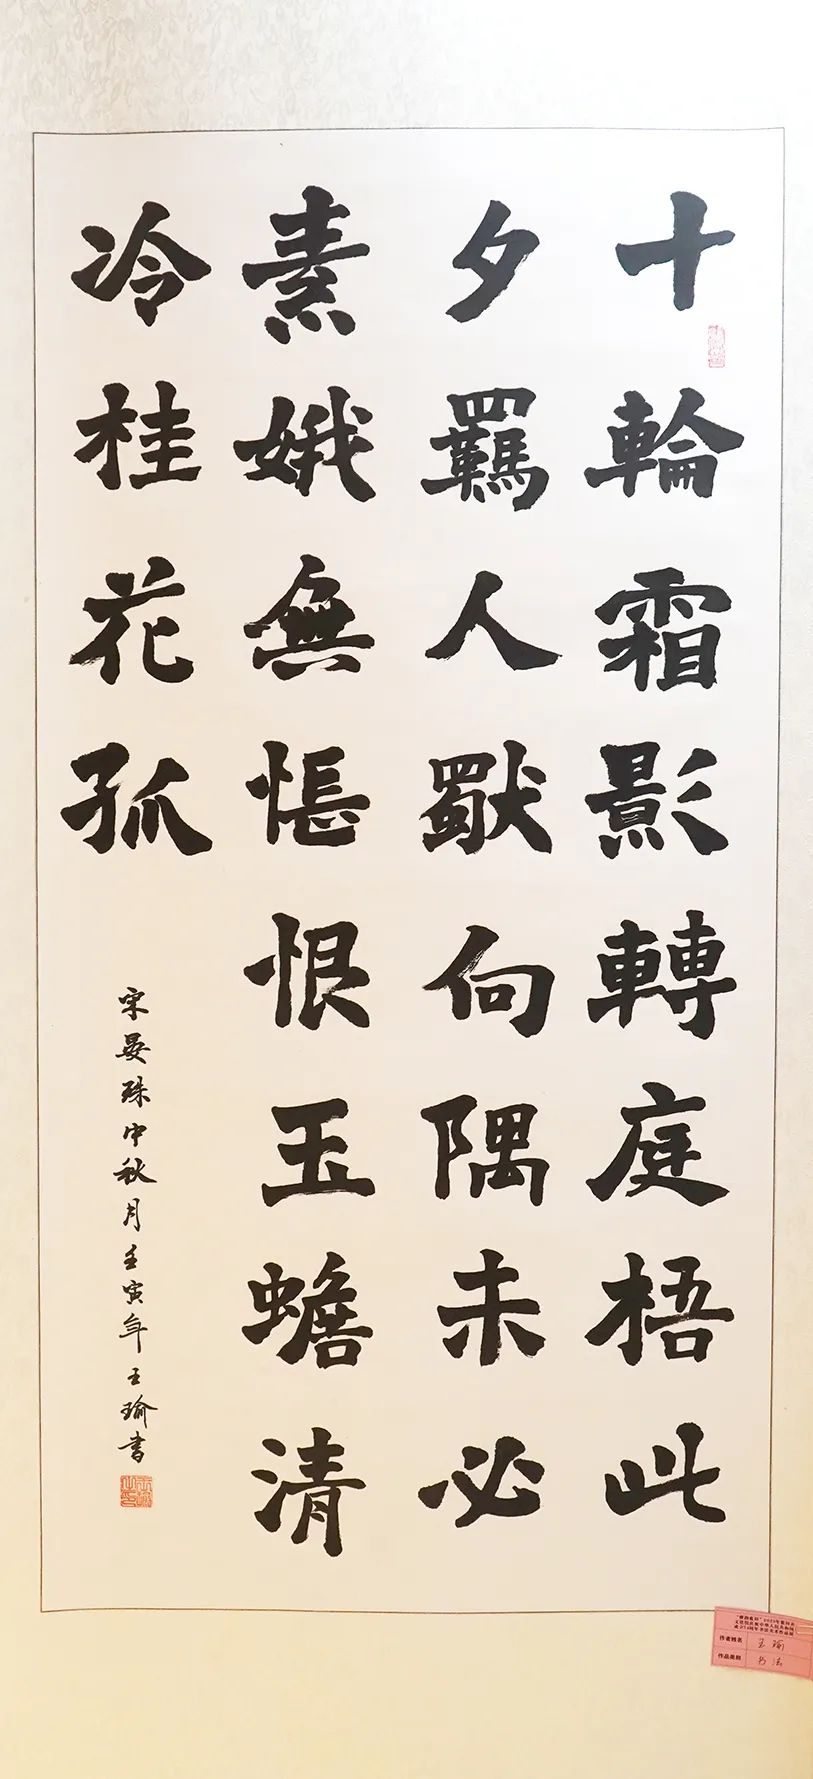 十輪霜影轉庭梧此
夕羈人獨向隅未必
素娥無悵恨玉蟾清
冷桂花孤
宋晏殊中秋月壬寅年王瑜書
作者姓名 王瑜
作品类别 书法